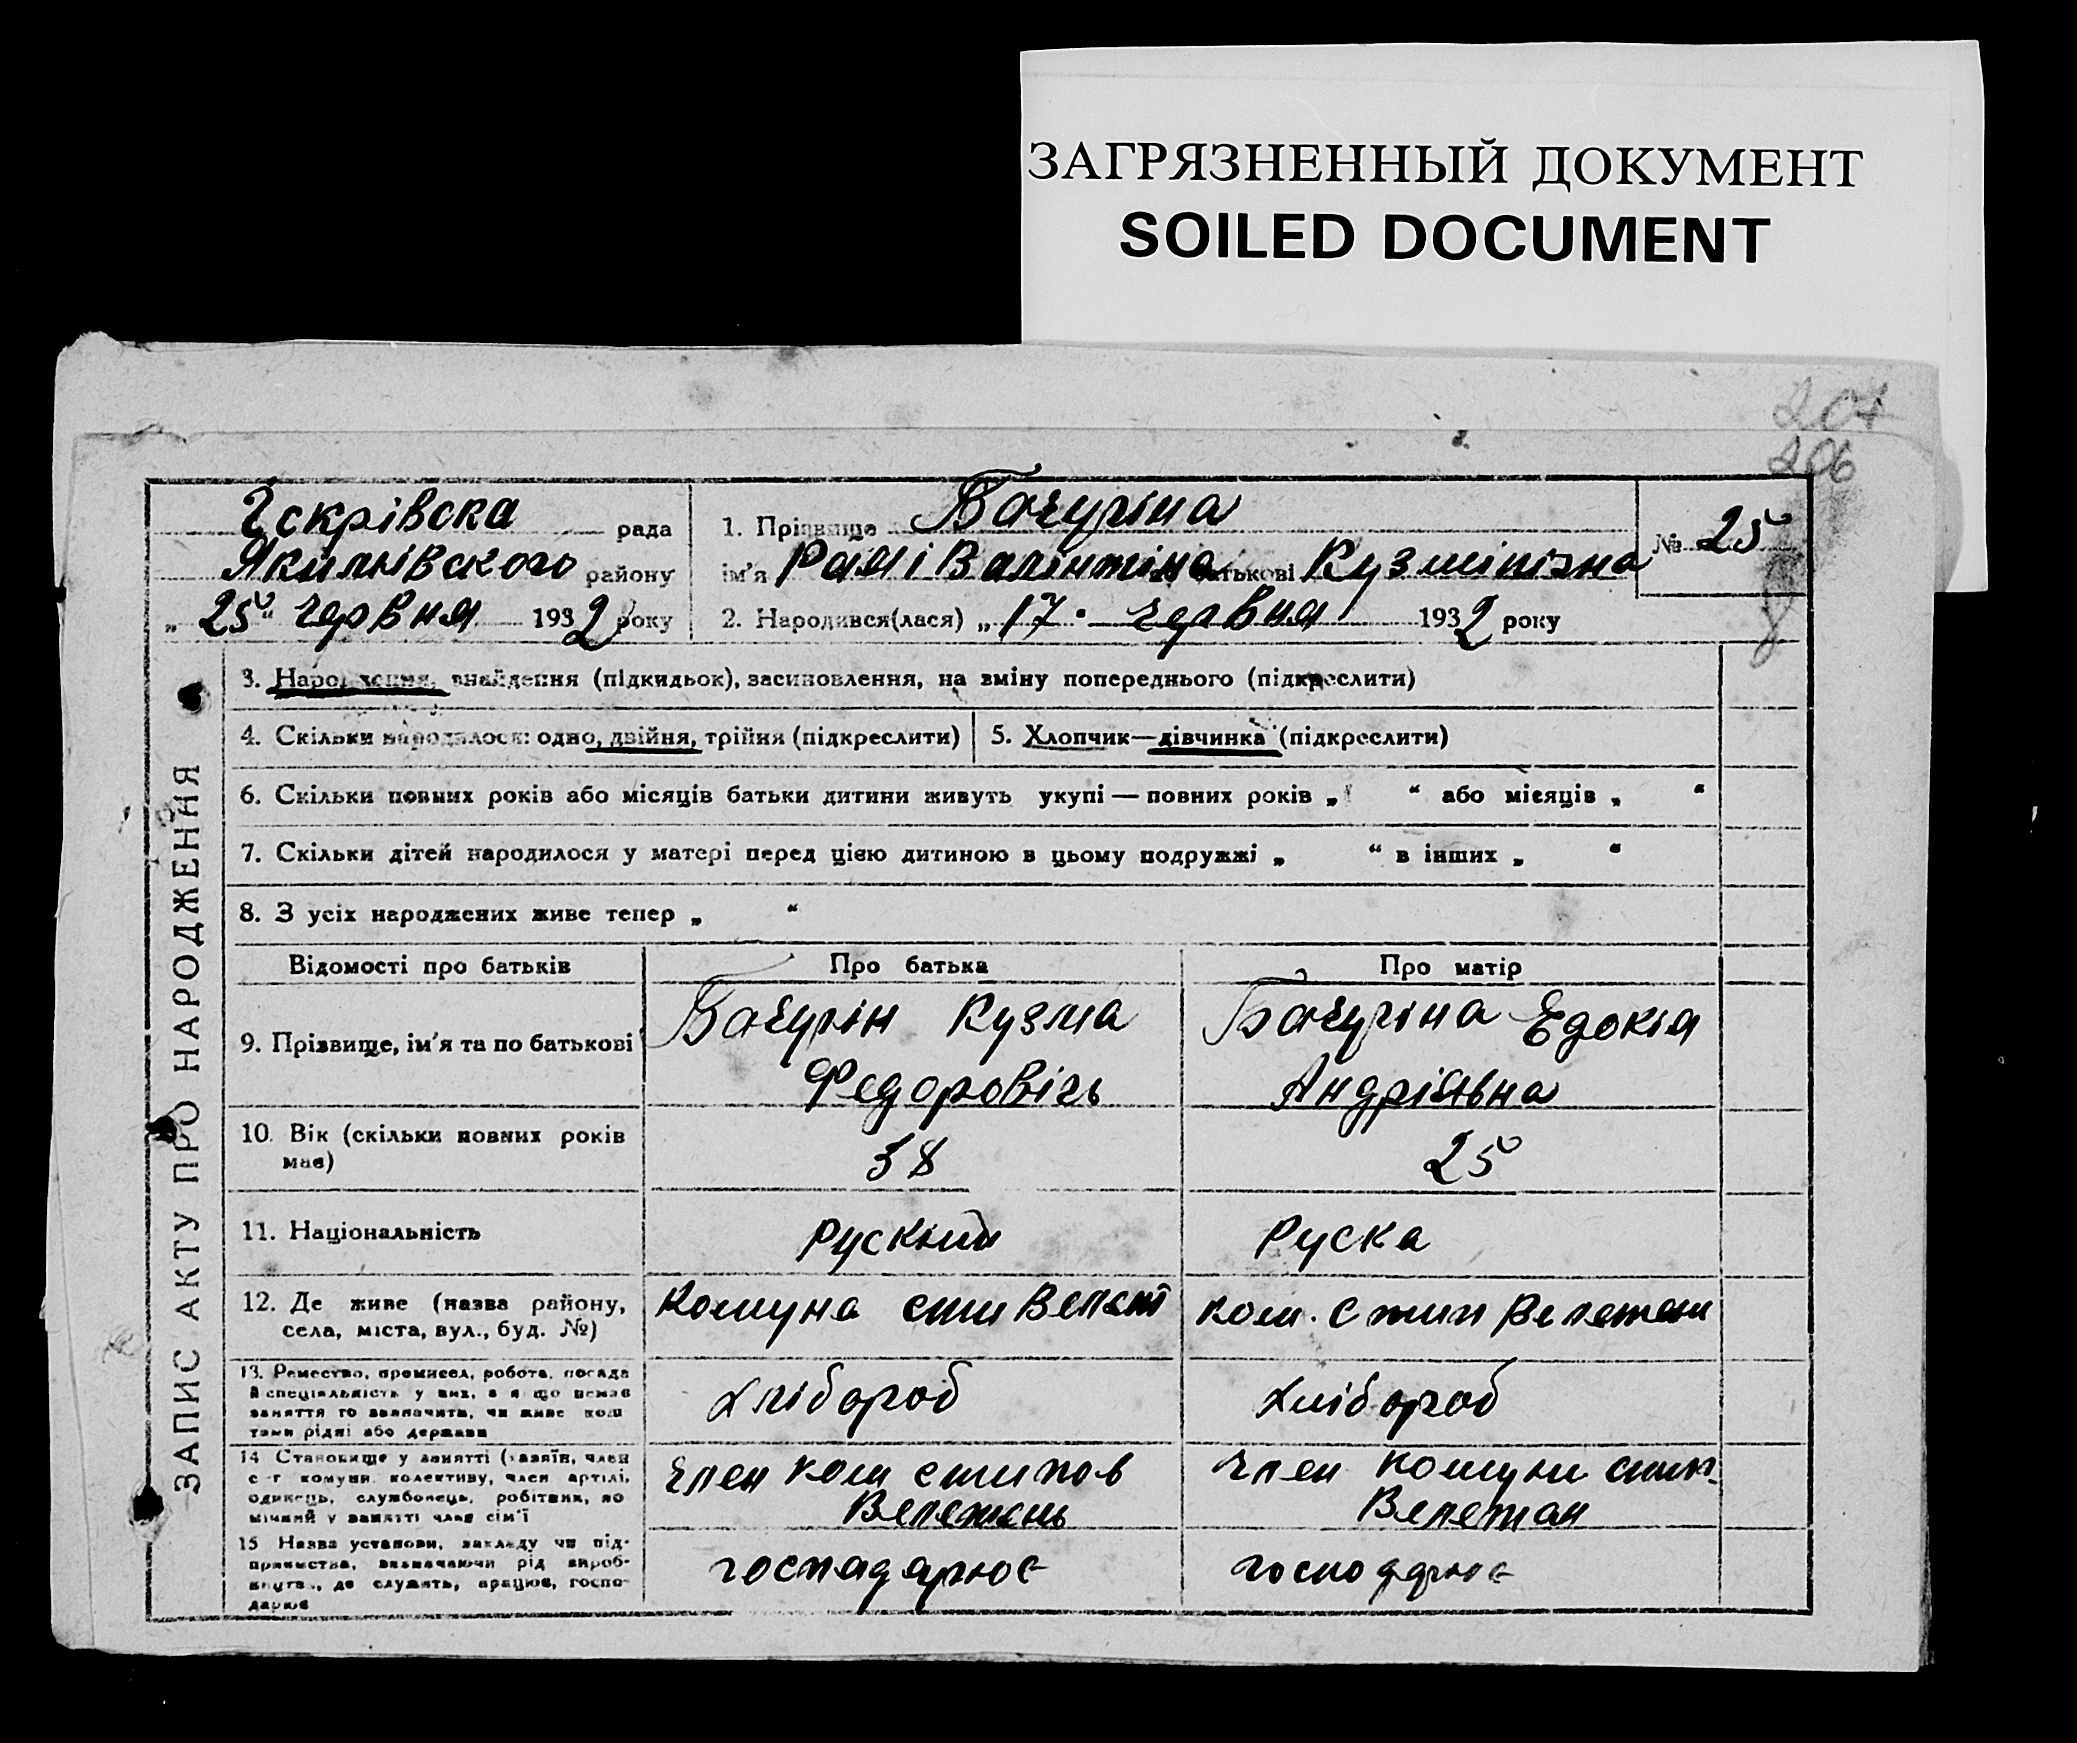 ЗАГРЯЗНЕННЫЙ ДОКУМЕНТ
SOILED DOCUMENT
207
206
Іскрівска рада
Якимівского району
„ 25 “ червня 1932 року
1. Прізвище Бачуріна
ім'я Рая і Валінтіна по батькові Кузмінізна
2. Народився(лася) „ 17 · червня 1932 року
№ 25
ЗАПИС АКТУ ПРО НАРОДЖЕННЯ
3. Народження, знайдення (підкидьок), засиновлення, на зміну попереднього (підкреслити)
4. Скільки народилося: одно, двійня, трійня (підкреслити)
5. Хлопчик—дівчинка (підкреслити)
6. Скільки повних років або місяців батьки дитини живуть укупі — повних років „ “ або місяців „ “
7. Скільки дітей народилося у матері перед цією дитиною в цьому подружжі „ “ в інших „ “
8. З усіх народжених живе тепер „ “
Відомості про батьків
Про батька
Про матір
9. Прізвище, ім'я та по батькові
Бачурін Кузма
Федоровічь
Бачуріна Едокія
Андріявна
10. Вік (скільки повних років
має)
38
25
11. Національність
Рускии
Руска
12. Де живе (назва району,
села, міста, вул., буд. №)
Комуна
ком.
13. Ремество, промисел, робота, посада
й спеціяльність у них, а якщо немає
заняття то зазначити, чи живе кош
тами рідні або держави
хлібороб
хлібороб
14 Становище у занятті (хазяїн, член
с-г комуни, колективу, член артілі,
одинець, службовець, робітник, по
мічний у занятті член сім'ї
член ком
член комуни
15 Назва установи, закладу чи під-
приємства, визначаючи рід вироб-
ництва, де служить, працює, госпо-
дарює
господарює
господарює